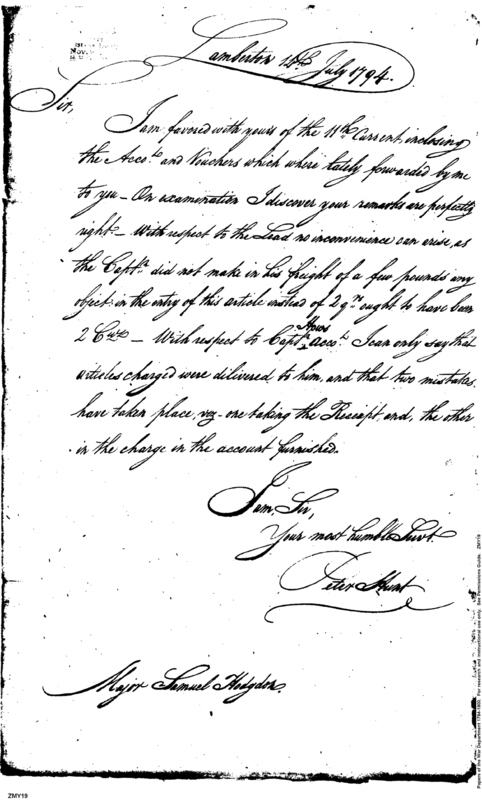 Lamberton 14th July 1794.
Sir,
I am favored with yours of the 11th Current, inclosing
the Accots and Vouchers which where lately forwarded by me
to you – On examination I discover your remarks are perfectly
right – With respect to the Lead no inconvenience can arise, as
the Captn did not make in his freight of a few pounds any
object: in the entry of this article instead of 2 qrs ought to have been
2 Cwt – With respect to Captn Hows accot I can only say that
articles charged were delivered to him, and that two mistakes
have taken place, vez – one taking the Receipt, and, the other
in the charge in the account furnished.
I am, Sir,
Your most humble Servt.
Peter Hunt
Major Samuel Hodgdon.
Papers of the War Department 1784-1800. For research and instructional use only. See Permissions Guide. ZMY19
ZMY19